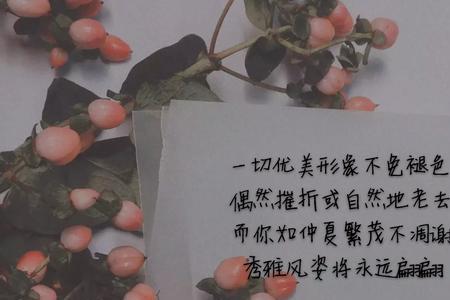 一切优美形象不免褪色
偶然摧折或自然地老去
而你如仲夏繁茂不凋谢
秀雅风姿将永远翩翩